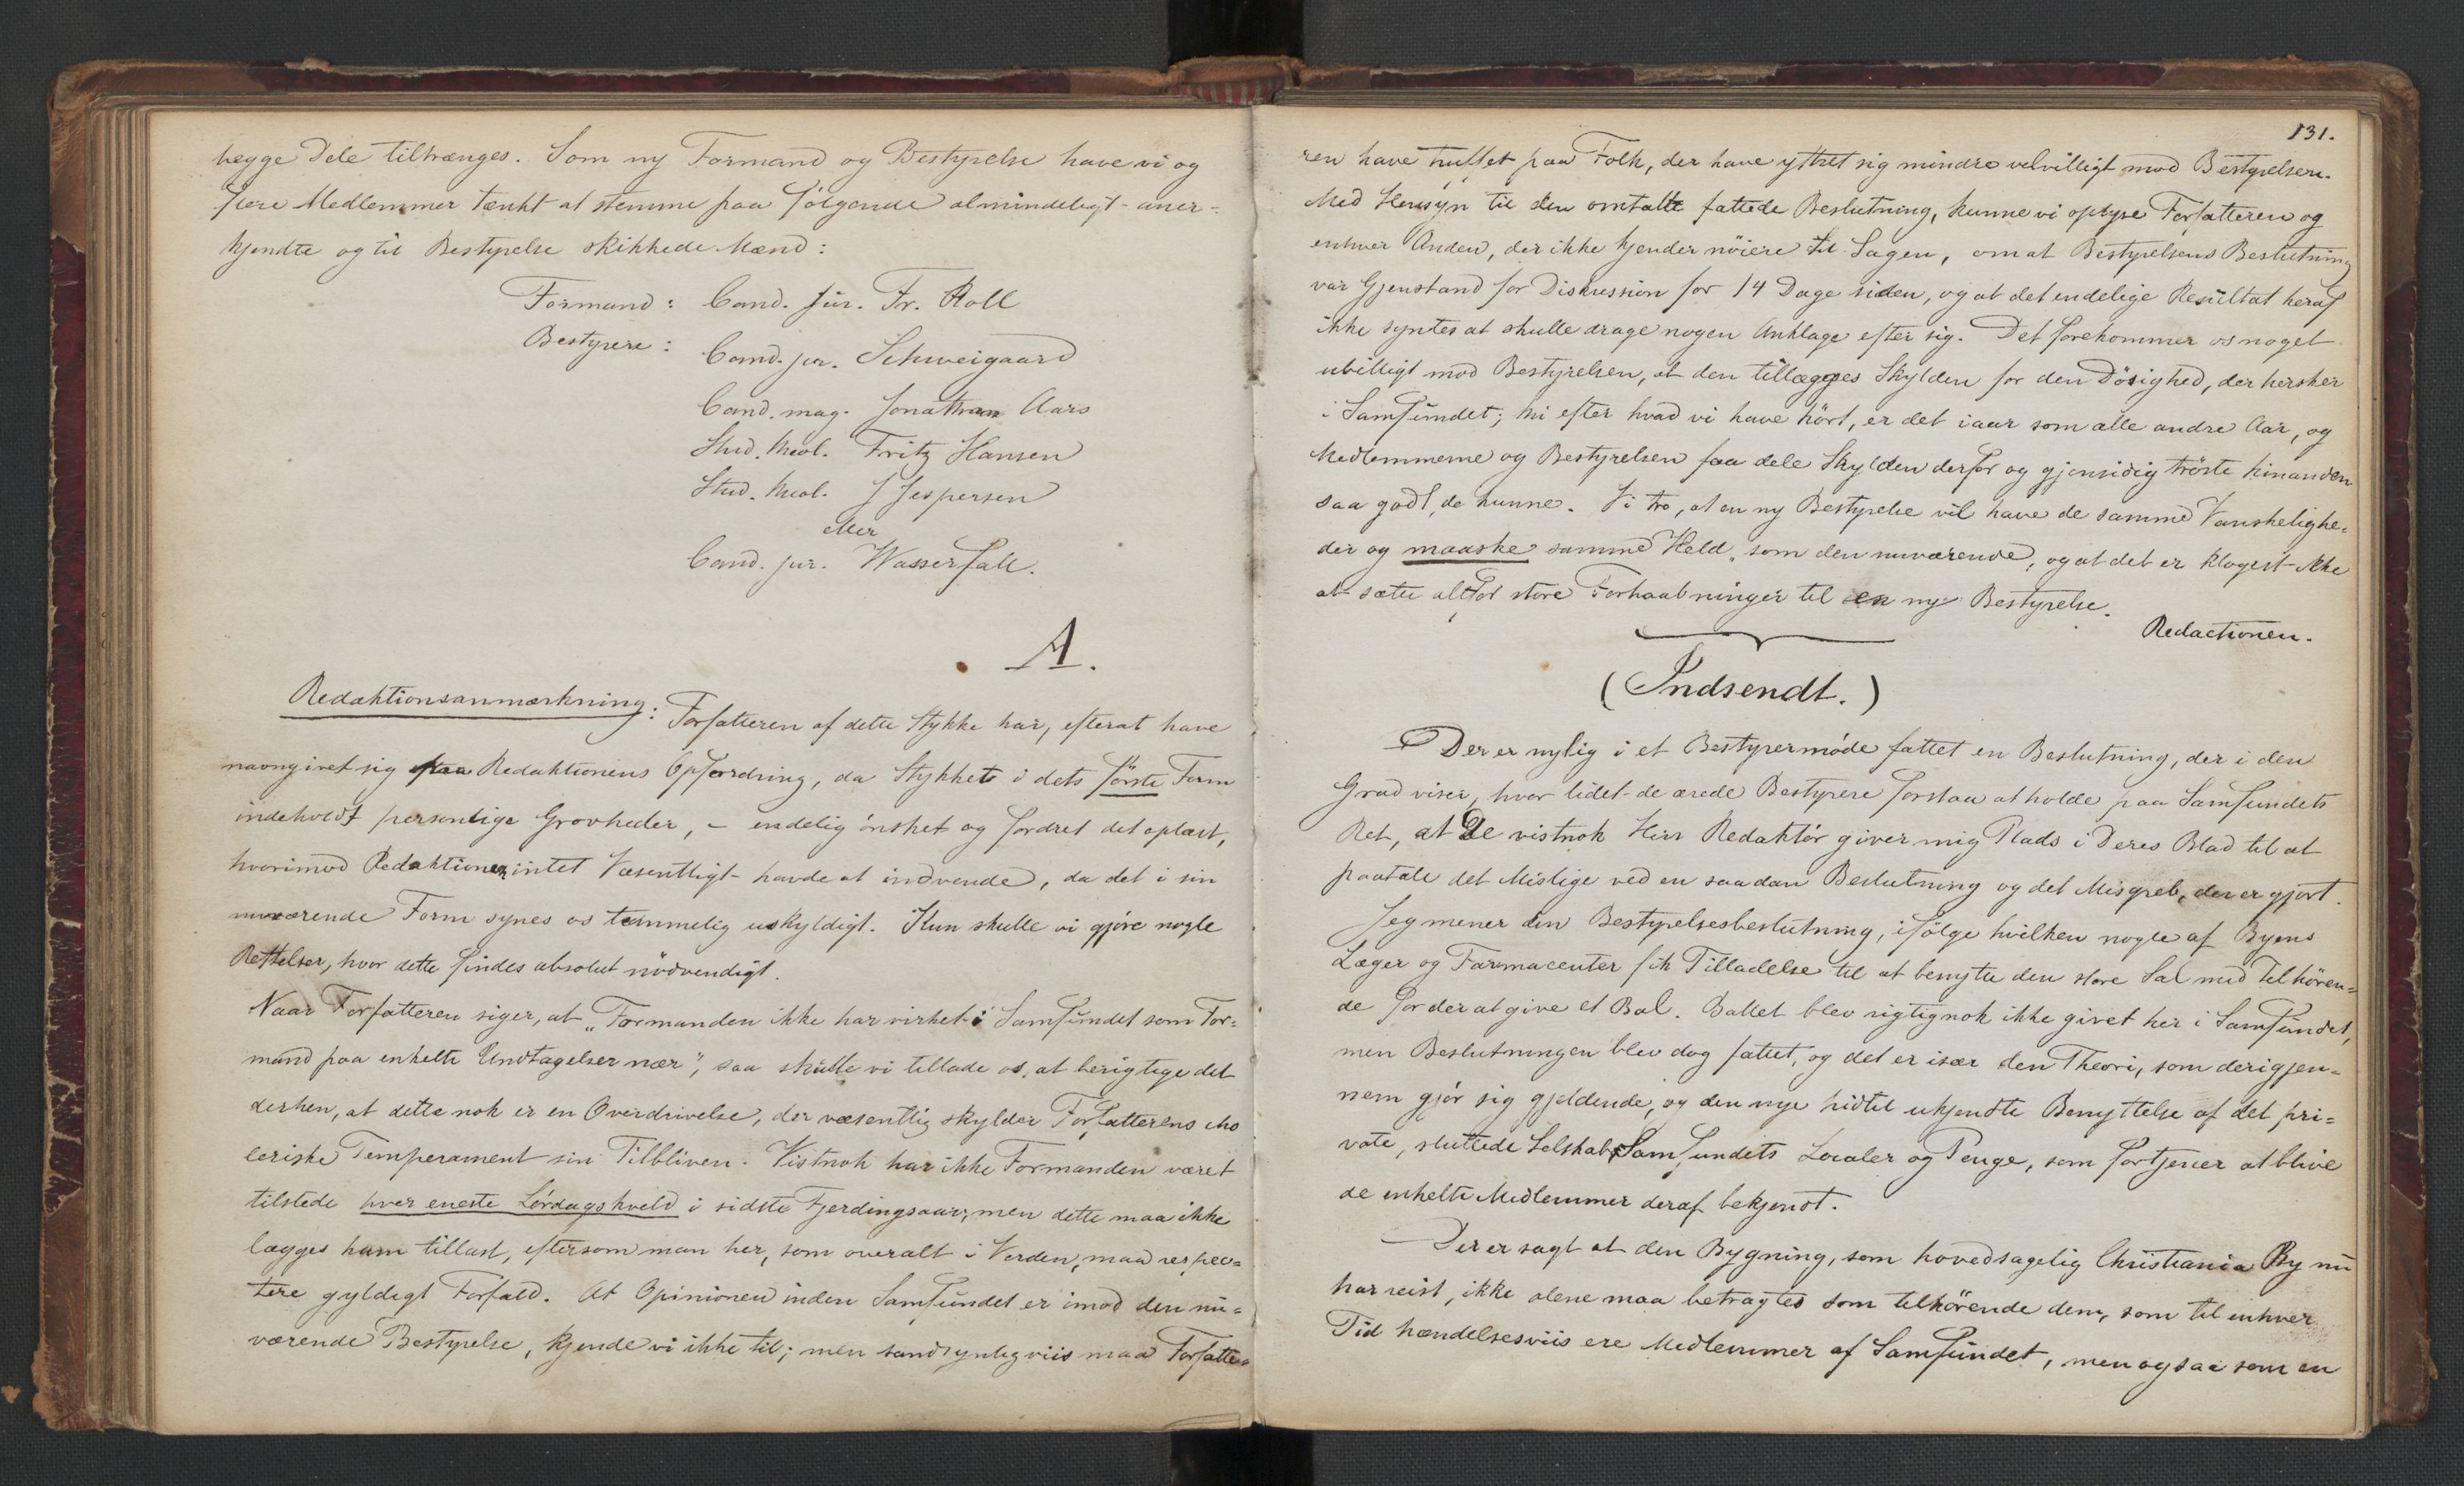 begge Dele tiltrænges. Som ny Formand og Bestyrelse have vi og
flere Medlemmer tænkt at stemme paa følgende almindeligt-aner-
kjendte og til Bestyrelse skikkede Mænd:
Formand: Cand. jur. Fr. Roll
Bestyrere: Cand. jur. Schweigaard
Cand. mag. Jonathan Aars
Stud. theol. Fritz Hansen
Stud. theol. J Jespersen
eller
Cand. jur. Wasserfall.
A.
Redaktionsanmærkning: Forfatteren af dette Stykke har, efterat have
navngivet sig paa Redaktionens Opfordring, da Stykket i dets første Form
indeholdt personlige Grovheder, – endelig ønsket og fordret det oplæst,
hvorimod Redaktionen intet Væsentligt havde at indvende, da det i sin
nuværende Form synes os temmelig uskyldigt. Kun skulle vi gjøre nogle
Rettelser, hvor dette findes absolut nødvendigt.
Naar Forfatteren siger, at „Formanden ikke har virket i Samfundet som For-
mand paa enkelte Undtagelser nær", saa skulle vi tillade os, at berigtige det
derhen, at dette nok er en Overdrivelse, der væsentlig skylder Forfatterens cho
leriske Temperament sin Tilbliven. Vistnok har ikke Formanden været
tilstede hver eneste Lørdagskveld i sidste Fjerdingsaar, men dette maa ikke
lægges ham tillast, eftersom man her, som overalt i Verden, maa respec-
tere gyldigt Forfald. At Opinionen inden Samfundet er imod den nu-
værende Bestyrelse, kjende vi ikke til; men sandsynligviis maa Forfatte-
131.
ren have truffet paa Folk, der have yttret sig mindre velvilligt mod Bestyrelsen.
Med Hensyn til den omtalte fattede Beslutning, kunne vi oplyse Forfatteren og
enhver Anden, der ikke kjender nøiere til Sagen, om at Bestyrelsens Beslutning
var Gjenstand for Diskussion for 14 Dage siden, og at det endelige Resultat heraf
ikke syntes at skulle drage nogen Anklage efter sig. Det forekommer os noget
ubilligt mod Bestyrelsen, at den tillægges Skylden for den Døsighed, der hersker
i Samfundet; thi efter hvad vi have hørt, er det iaar som alle andre Aar, og
Medlemmerne og Bestyrelsen faa dele Skylden derfor og gjensidig trøste hinanden
saa godt de kunne. Vi tro, at en ny Bestyrelse vil have de samme Vanskelighe-
der og maaske samme Held, som den nuværende, og at det er klogest ikke
at sætte altfor store Forhaabninger til en ny Bestyrelse.
Redactionen.
(Indsendt.)
Der er nylig i et Bestyrermøde fattet en Beslutning, der i den
Grad viser, hvor lidet de ærede Bestyrere forstaa at holde paa Samfundets
Ret, at De vistnok Herr Redaktør giver mig Plads i Deres Blad til at
paatale det Mislige ved en saadan Beslutning og det Misgreb, der er gjort.
Jeg mener den Bestyrelsesbeslutning, ifølge hvilken nogle af Byens
Læger og Farmacenter fik Tilladelse til at benytte den store Sal med Tilhøren-
de for der at give et Bal. Ballet blev rigtignok ikke givet her i Samfundet,
men Beslutningen blev dog fattet, og det er især den Theori, som derigjen-
nem gjør sig gjeldende, og den nye hidtil ukjendte Benyttelse af det pri-
vate, sluttede Selskabs Samfundets Localer og Penge, som fortjener at blive
de enkelte Medlemmer deraf bekjendt.
Der er sagt at den Bygning, som hovedsagelig Christiania By nu
har reist, ikke alene maa betragtes som tilhørende dem, som til enhver
Tid hændelsesviis ere Medlemmer af Samfundet, men ogsaa som en